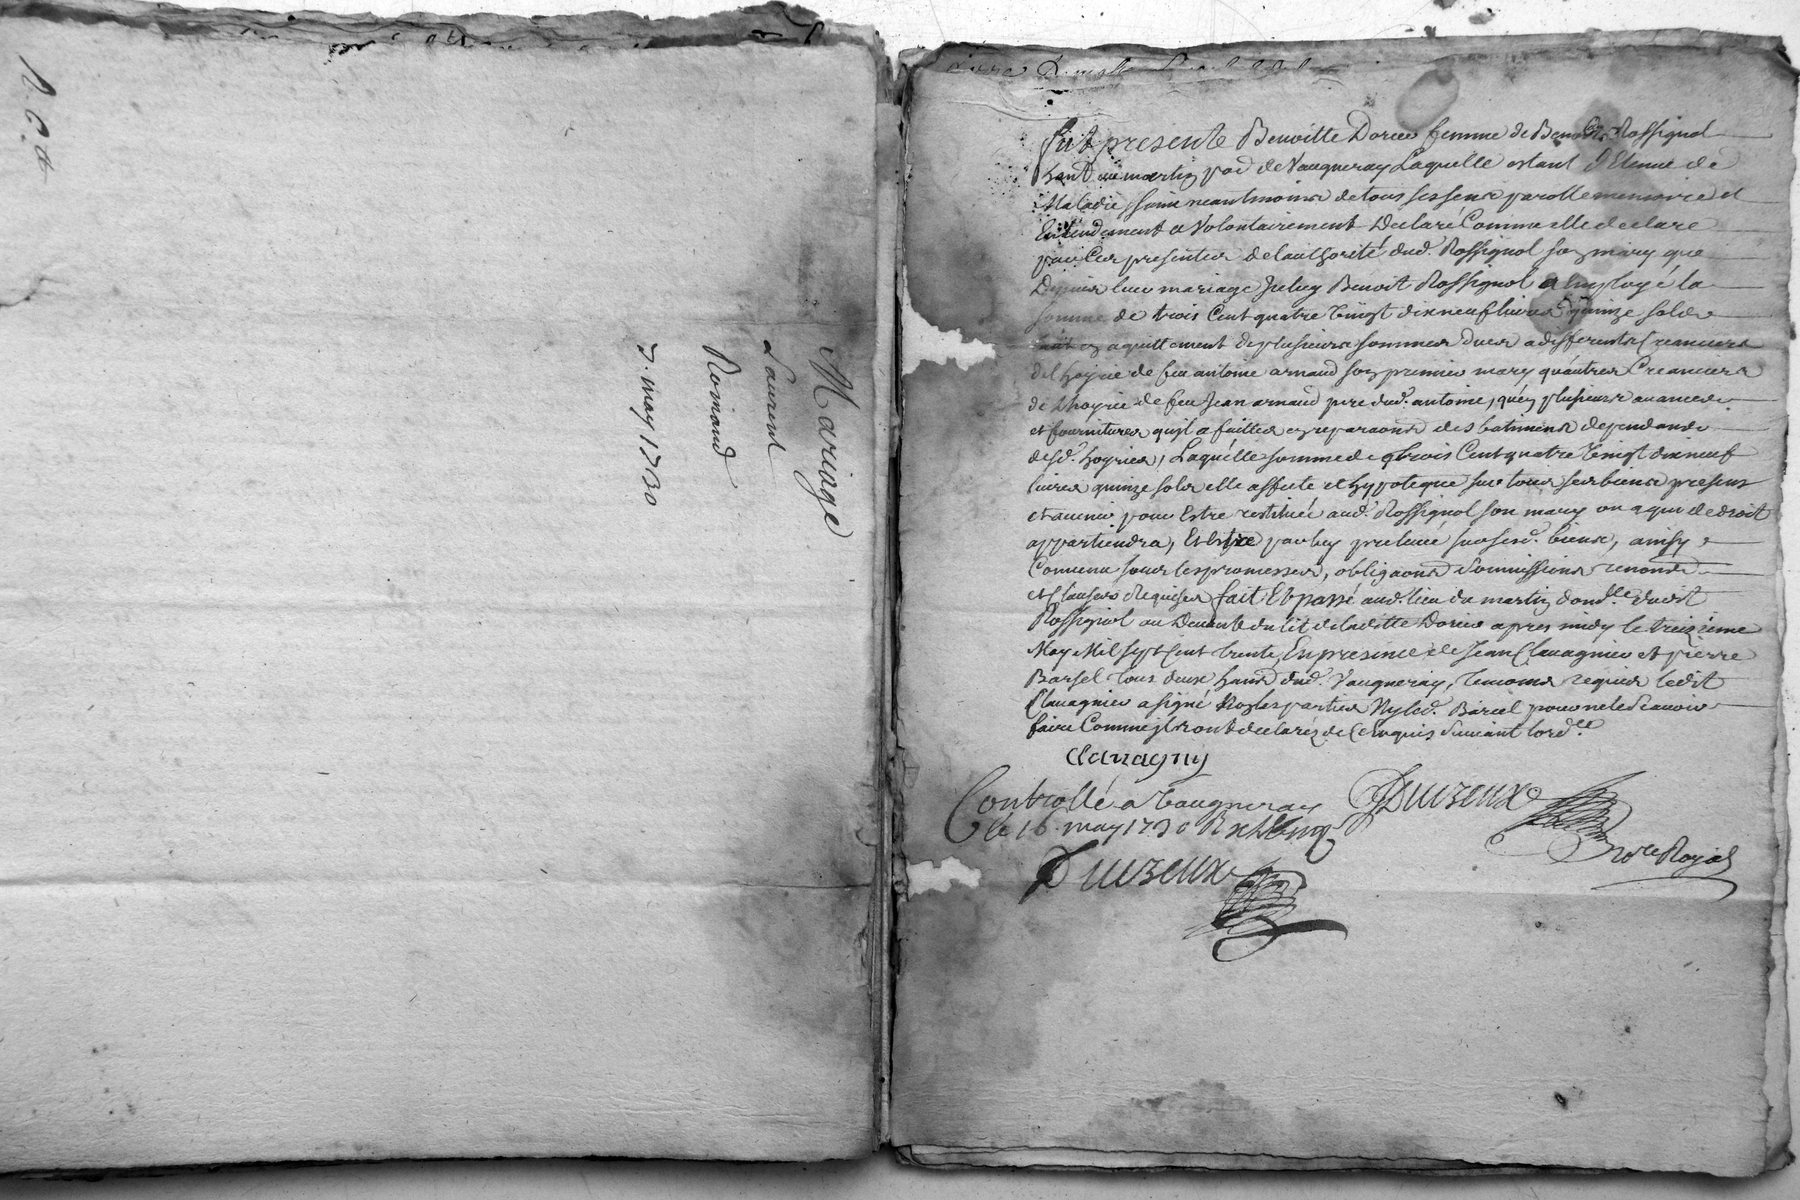 Mariage
Laurent
Romand
7. may 1730
Fut presente Benoitte Dorée femme de Benoist Rossignol
hant au martin parr de Vaugneray Laquelle estant detenue de
Maladie, saine neantmoins de tous ses sens parolle memoire et
Entendement a Volontairement Declaré Comme elle declare
par Ces presentes de lauthorité dud. Rossignol son mary que
Depuis leur mariage Iceluy Benoit Rossignol a employé la
somme de trois Cent quatre Vingt dix neuf livres quinze solds
tant en aquittement de plusieurs sommes dues a differents Creanciers
de lhoyrie de feu antoine arnaud son premier mary qu'autres Creanciers
de Lhoyrie de feu Jean arnaud pere dud. antoine, qu'en plusieurs avances
et fournitures quil a faittes en reparaons des batiments dependants
desd. hoyries, Laquelle somme de trois Cent quatre Vingt dix neuf
livres quinze solds elle affecte et hypoteque sur tous ses biens presents
et avenir pour Estre restituée aud. Rossignol son mary ou a qui de droit
appartiendra, Et Estre par luy prelevé sur sesd. biens, ainsy
Convenu sous les promesses, obligaons soumissions renonces
et Clauses Requises fait Et passé aud. lieu du martin domlle dudit
Rossignol au Devant du lit de laditte Dorée apres midy le treizieme
May Mil sept Cent trente, En presence de Jean Clavagnier et pierre
Barsel tous deux hants dud. Vaugneray, temoins requis ledit
Clavagnier a signé Non les parties Ny led. Barcel pour ne le Scavoir
faire Comme ils ont declarés de Ce Enquis Suivant lord.ce
Clavagny
Controllé a Vaugneray
le 16. may 1730 R
Duizeux
Nore Royal
Duizeux